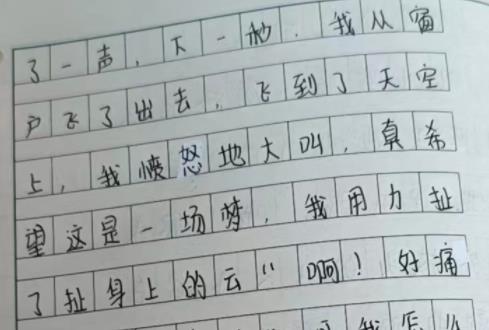 了一声，下一秒，我从窗
户飞了出去，飞到了天空
上，我愤怒地大叫，真希
望这是一场梦，我用力扯
了扯身上的云“啊！好痛
我怎么